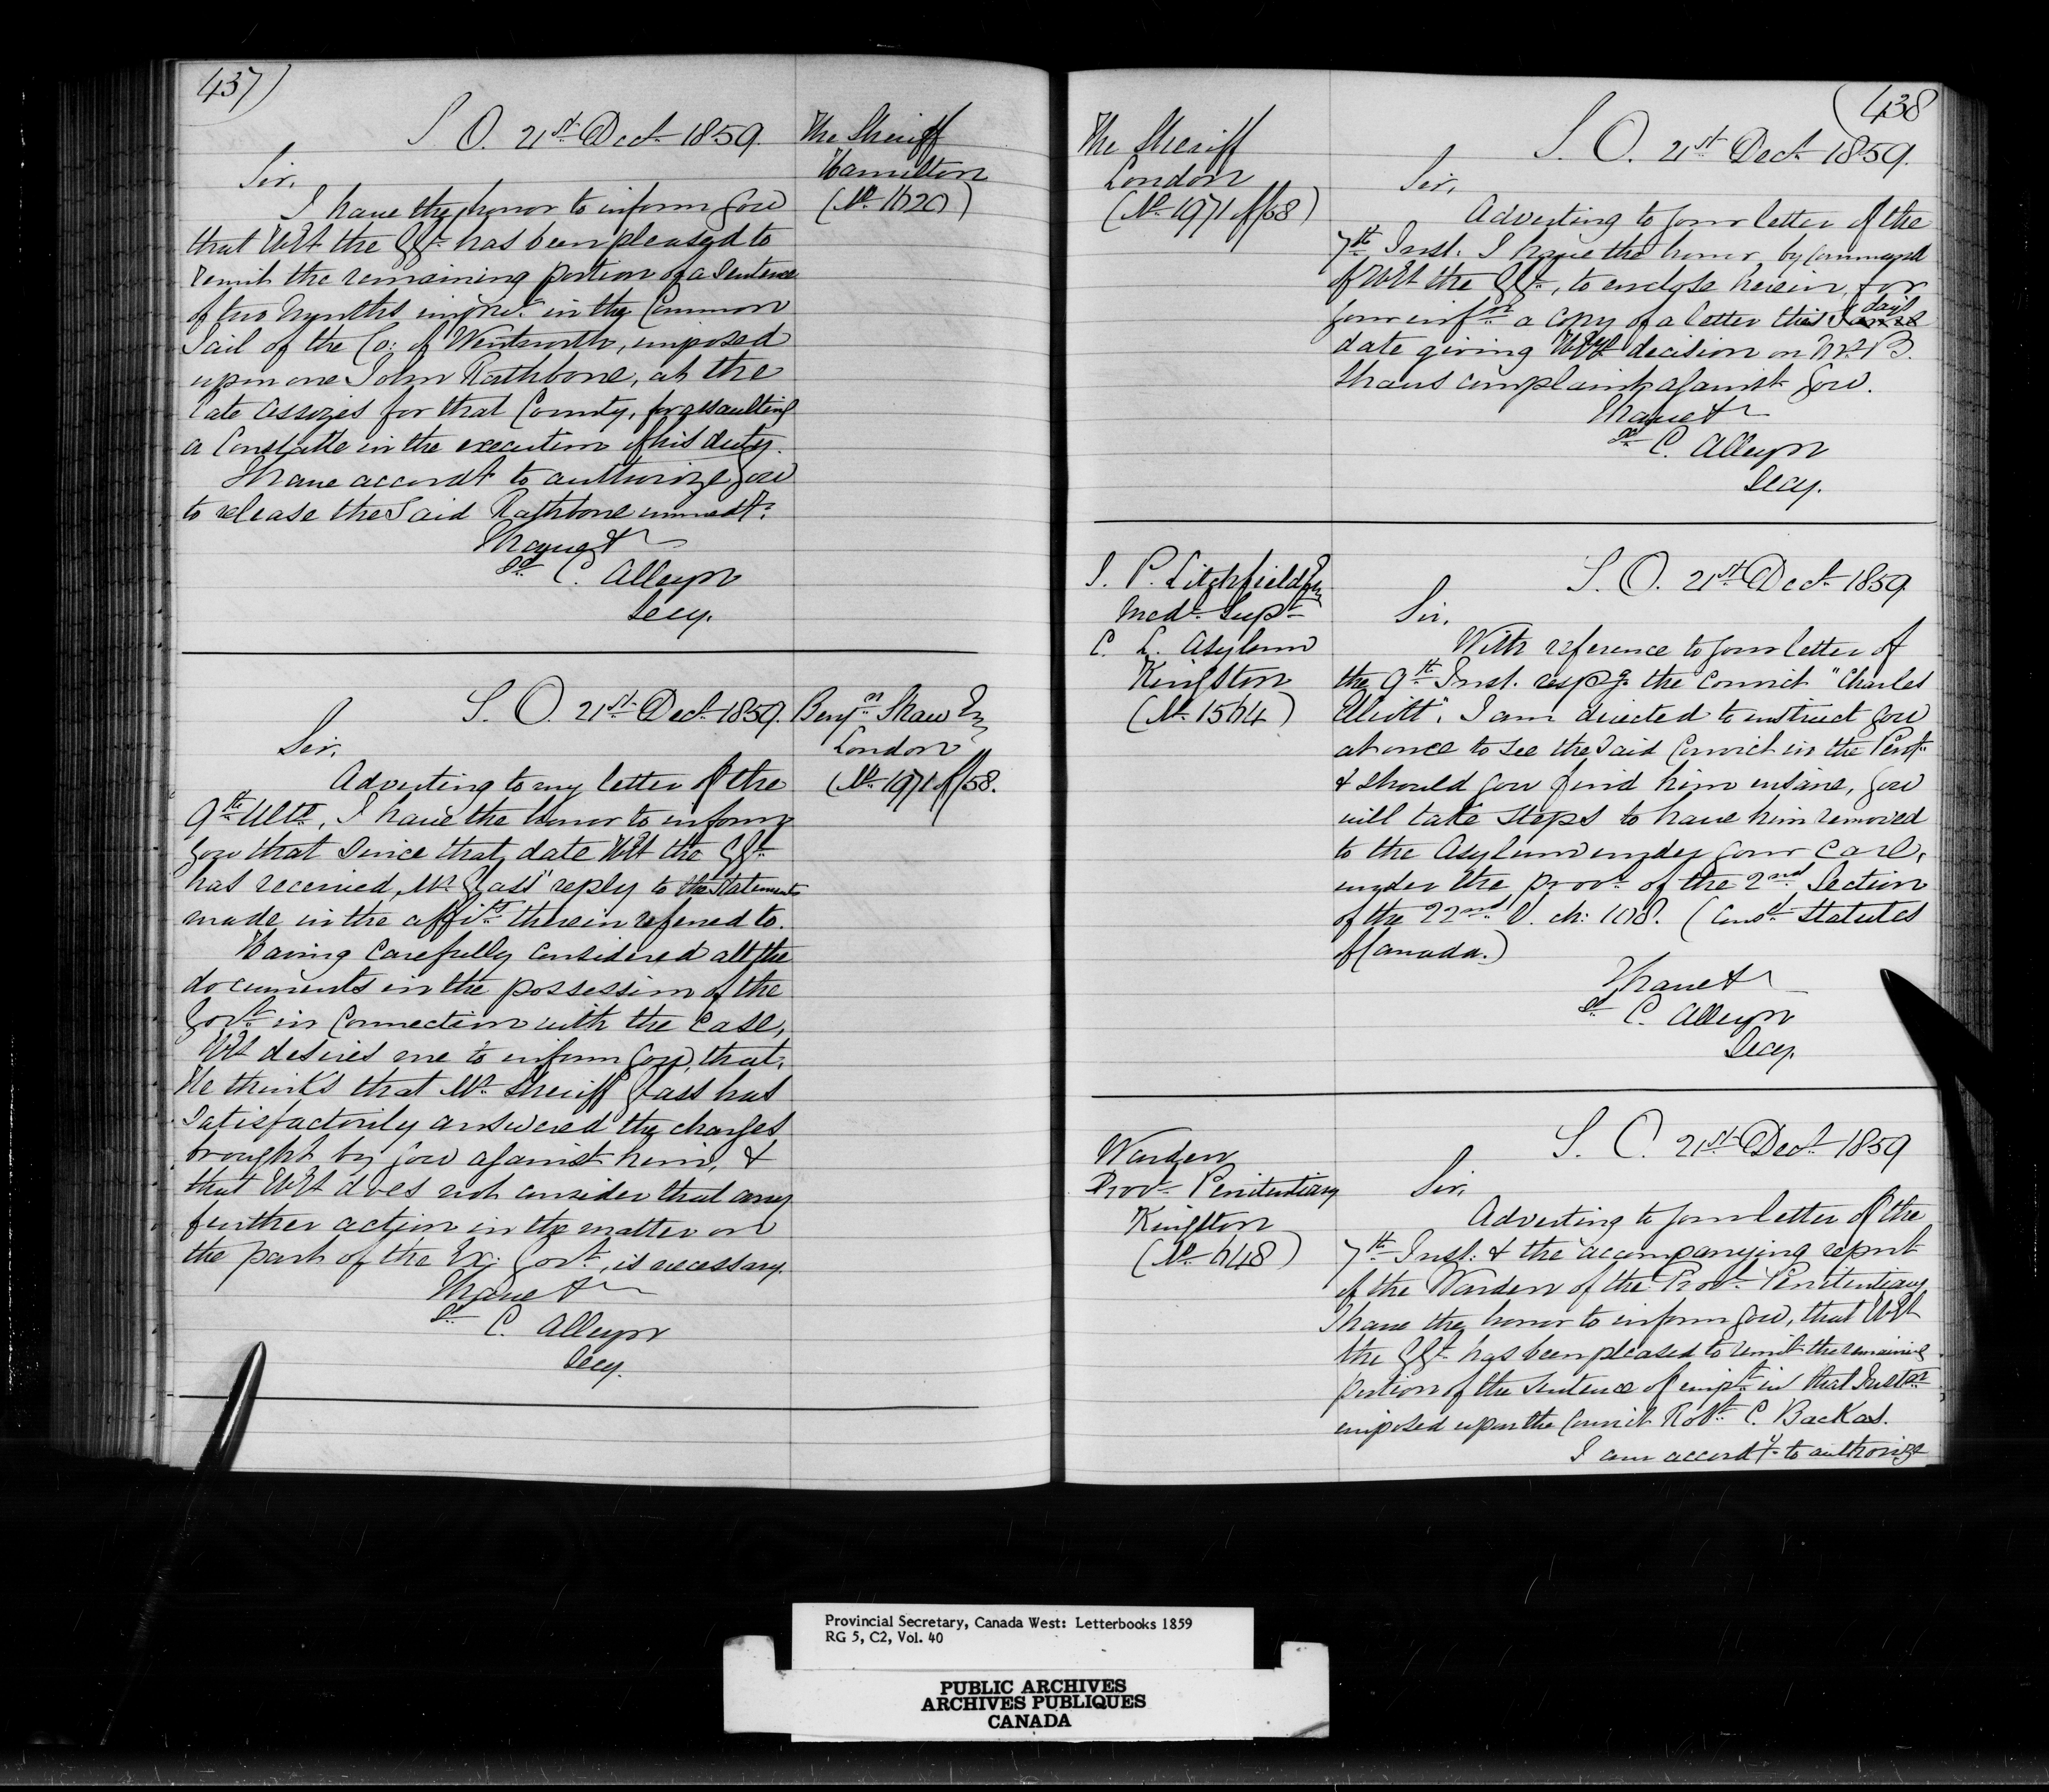 437)
S. O. 21st Dect 1859.
The Sheriff
Hamilton
(No 1620)
Sir,
I have the honor to inform you
that HEt the GGl has been pleased to
remit the remaining portion of a Sentence
of two Months imprt in the Common
Jail of the Co: of Wentworth, imposed
upon one John Rathbone, at the
late Assizes for that County, for assaulting
a Constable in the execution of his duty.
I have accordy to authorize you
to release the Said Rathbone immedy.
I have &
sd C. Alleyn
Secy.
S. O. 21st Dect 1859.
Benjn Shaw Eq
London
(No 1971 of/58.
Sir,
Adverting to my letter of the
9th Ulto, I have the honor to inform
you that Since that date HEt the GGl
has received, Mr Glass" reply to the Statements
made in the affits therein referred to.
Having Carefully Considered all the
documents in the possession of the
Govt in Connection with the Case,
HEt desires me to inform you, that,
He thinks that Mr Sheriff Glass has
Satisfactorily answered the charges
brought by you against him, &
that HEt does not consider that any
further action in the matter on
the part of the Ex: Govt, is necessary.
I have &
sd C. Alleyn
Secy.
(438
The Sheriff
London
(No 1971 of/58)
S. O. 21st Dect 1859.
Sir,
Adverting to your letter of the
7th Inst. I have the honor, by Command
of HEt the GGl, to enclose herein, for
your infn a Copy of a letter this day's
date giving HEys decision on Mr B.
Shaws complaint against you.
I have &
sd C. Alleyn
Secy.
J. P. Litchfield Eq
Medl Supt
C. L. Asylum
Kingston
(No 1564)
S. O. 21st Dect 1859
Sir,
With reference to your letter of
the 9th Inst. respg the Convict "Charles
Elliott", I am directed to instruct you
at once to see the Said Convict in the Pent.
& should you find him insane, you
will take Steps to have him removed
to the Asylum under your Care,
under the provs of the 2nd Section
of the 22nd V. ch: 108. (Consd Statutes
of Canada.)
I have &
sd C. Alleyn
Secy.
Warden
Provl Penitentiary
Kingston
(No 648)
S. O. 21st Dect 1859
Sir,
Adverting to your letter of the
7th Inst. & the accompanying report
of the Warden of the Provl Penitentiary
I have the honor to inform you, that HEt
the GGl has been pleased to remit the remaining
portion of the Sentence of impt in that Instn
imposed upon the Convict Robt C. Backas.
I am accordy to authorize
Provincial Secretary, Canada West: Letterbooks 1859
RG 5, C2, Vol. 40
PUBLIC ARCHIVES
ARCHIVES PUBLIQUES
CANADA